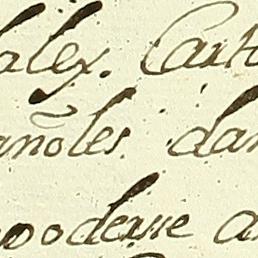 alex. Carto
añoles dan
poderse a